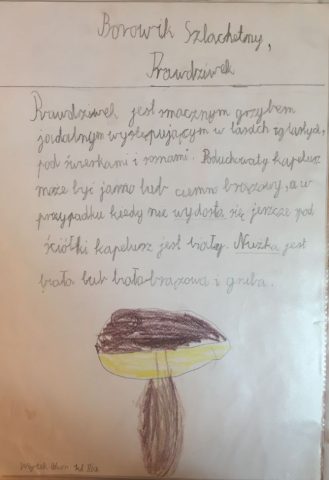 Borowik Szlachetny,
Prawdziwek
Prawdziwek jest smacznym grzybem
jadalnym występującym w lasach iglastych,
pod świerkami i sosnami. Poduchowaty kapelusz
może być jasno lub ciemno brązowy, a w
przypadku kiedy nie wydostał się jeszcze pod
ściółki kapelusz jest biały. Nuzka jest
biała lub biało-brązowa i gruba.
Wojtek kl